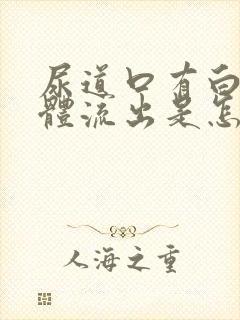 尿道口有白
體流出是怎
人海之重